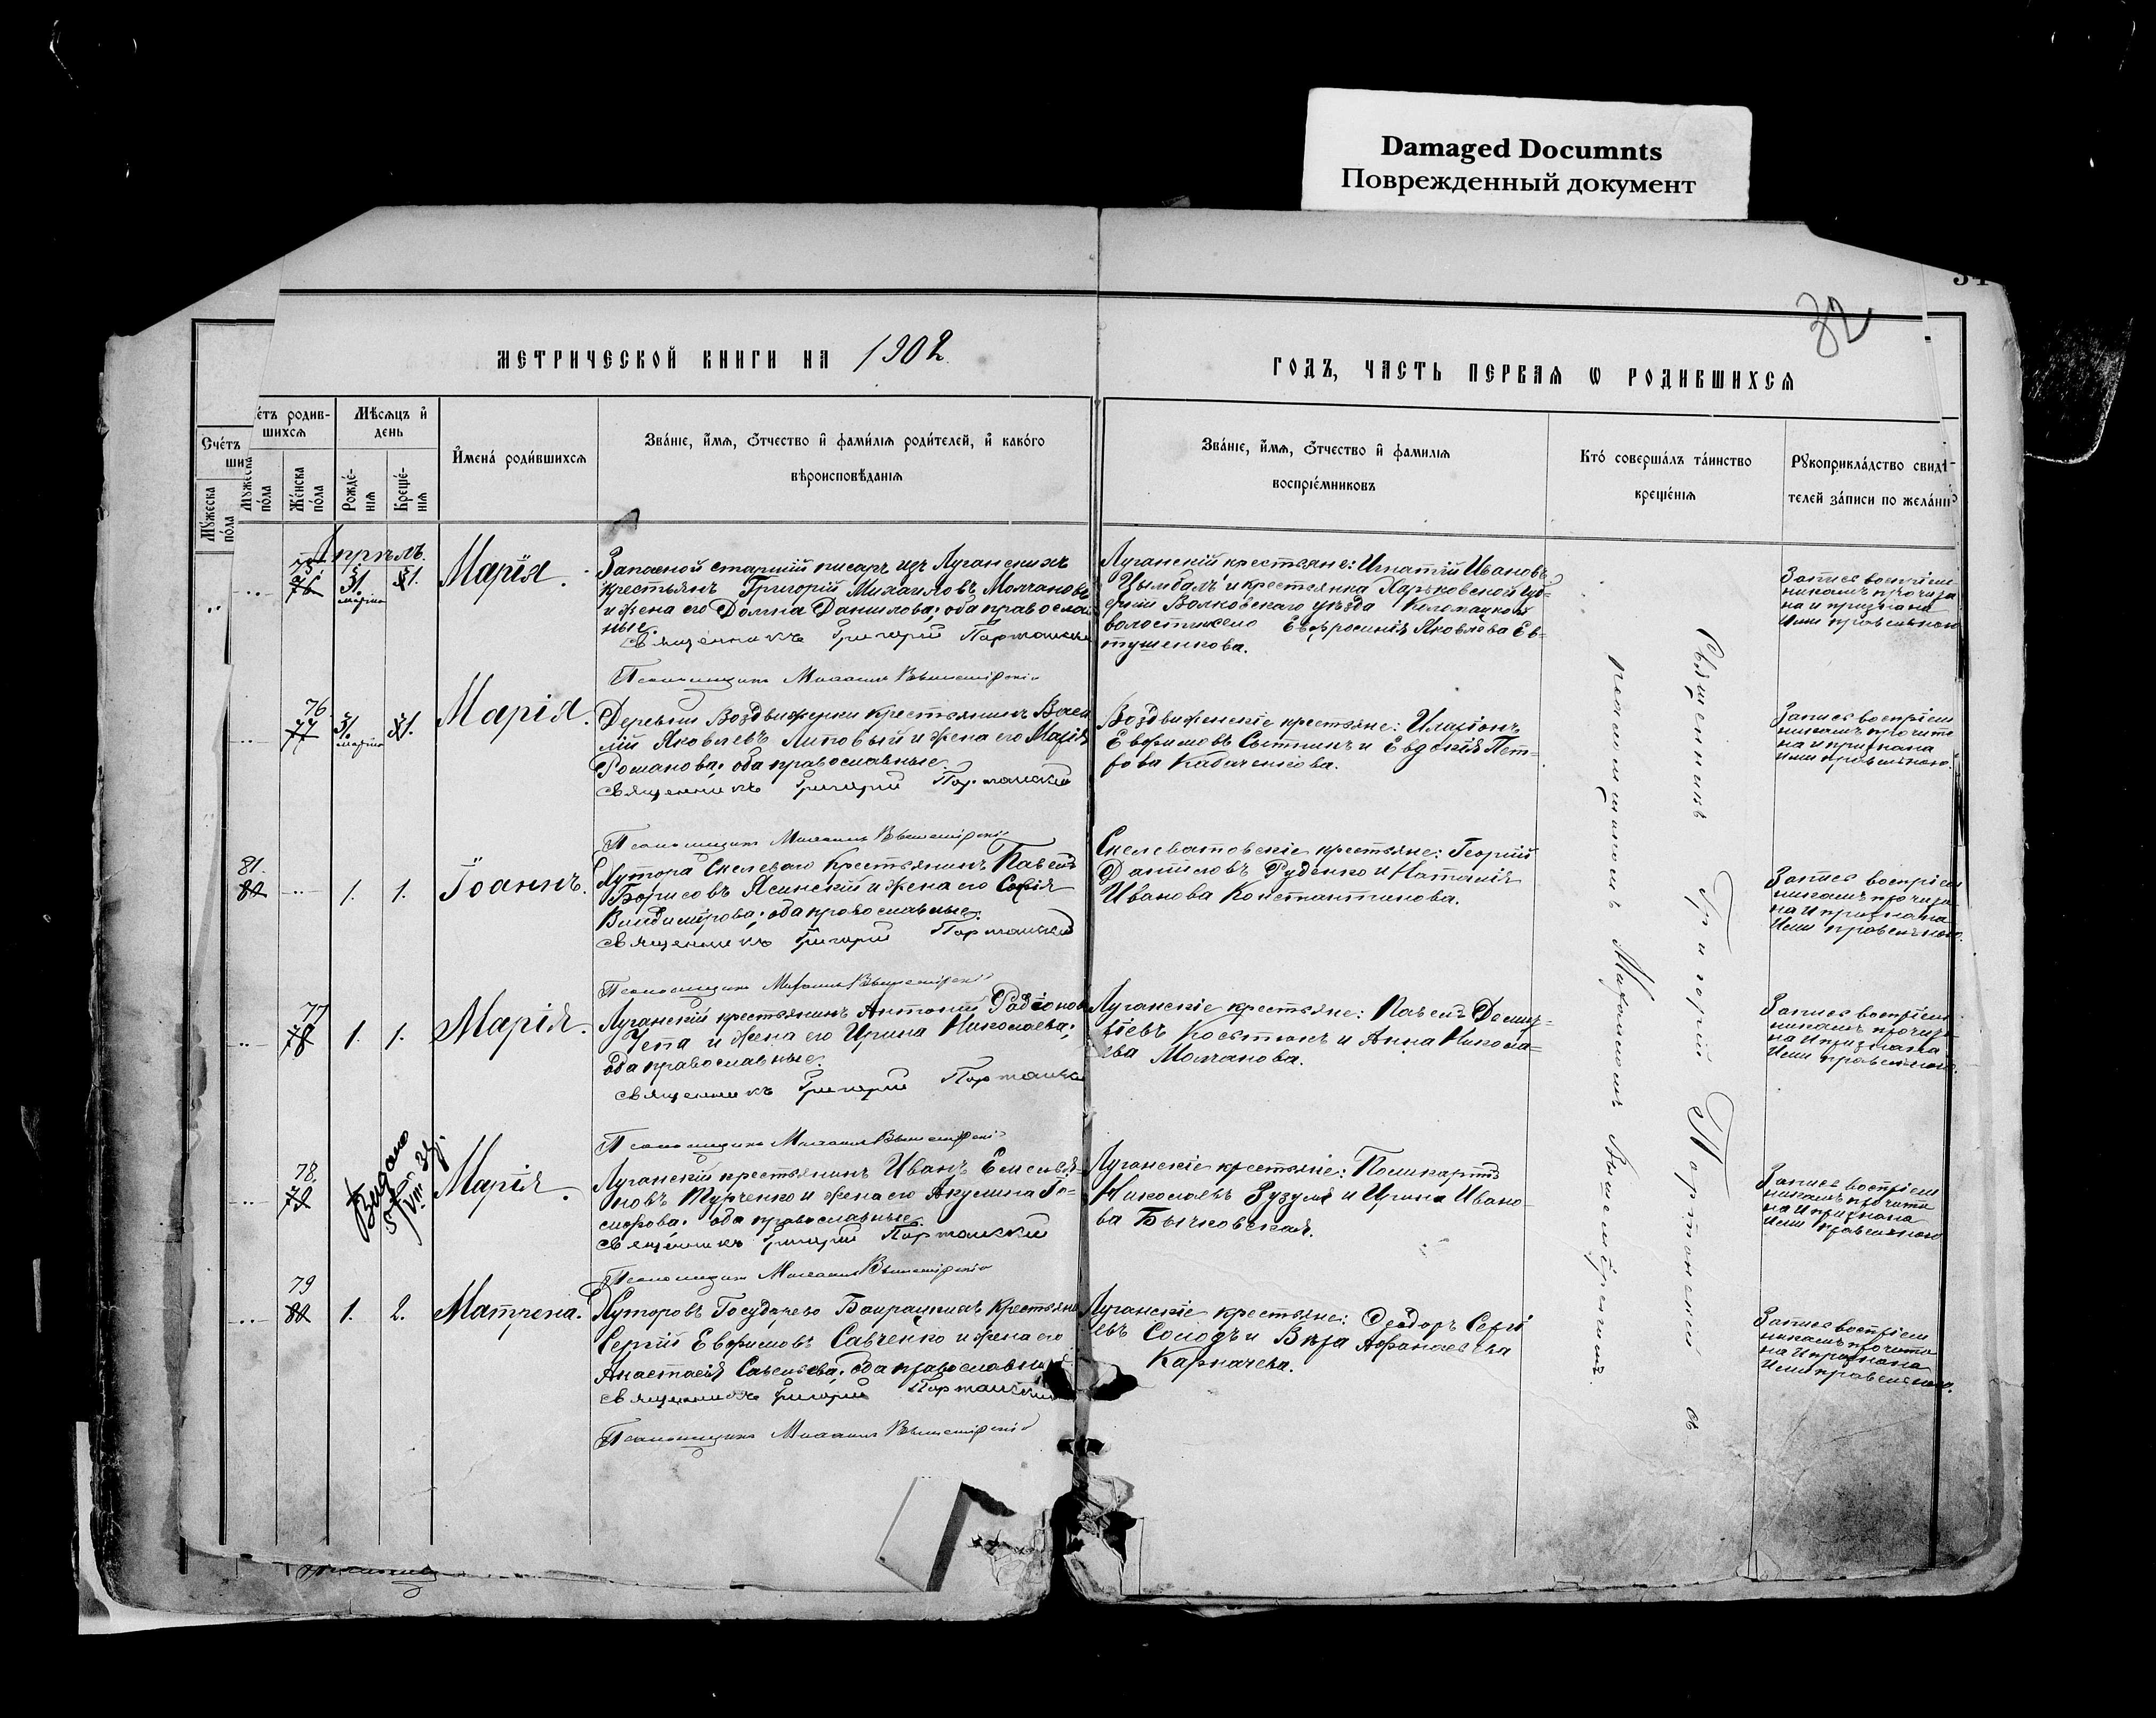 Damaged Documnts
Поврежденный документ
32
МЕТРИЧЕСКОЙ КНИГИ НА 1902
ГОДЪ, ЧАСТЬ ПЕРВАЯ Ѡ РОДИВШИХСЯ
Счетъ
етъ родив-
шихся
Мужеска
пола
Женска
пола
Мѣсяцъ и
день
Рожде-
нія
Креще-
нія
Имена родившихся
Званіе, имя, отчество и фамилія родителей, и какого
вѣроисповѣданія
Званіе, имя, отчество и фамилія
воспріемниковъ
Кто совершалъ таинство
крещенія
Рукоприкладство свидѣ-
телей записи по желанію
Апрѣль.
75
76
31
марта
Марія.
Запасной старшій писарь изъ Луганскихъ
крестьянъ Григорій Михаиловъ Молчановъ
и жена его Домна Данилова; оба православ
ные.
Священникъ Григорій Портанскій
Псаломщикъ Михаилъ Вышемірскій
Луганскій крестьяне: Игнатій Ивановъ
Цымбалъ и крестьянка Харьковской гу-
берніи Волковскаго уѣзда
Евфросинія Яковлева Ев-
тушенкова.
Запись воспріем
никамъ прочита
на и признана
ими правильною
76
77
31
марта
Марія.
Деревни Воздвиженки крестьянинъ Васи
лій Яковлевъ Липовый и жена его Марія
Романова; оба православные.
Священникъ Григорій Портанскій
Псаломщикъ Михаилъ Вышемірскій
Воздвиженскіе крестьяне: Иларіонъ
Евфимовъ Сытникъ и Евдокія Пет-
рова Кабаченкова.
Запись воспріем
никамъ прочита
на и признана
ими правильною.
81.
82
1.
1.
Іоаннъ.
Хутора Скелеваго крестьянинъ Павелъ
Борисовъ Ясинскій и жена его Софія
Владимірова; оба православные.
Священникъ Григорій Портанскій
Псаломщикъ Михаилъ Вышемірскій
Скелеватовскіе крестьяне: Георгій
Даниловъ Руденко и Наталія
Иванова Константинова.
Запись воспріем
никамъ прочита
на и признана
ими правильною.
77
78
1.
1.
Марія.
Луганскій крестьянинъ Антоній Радіоновъ
Чепа и жена его Ирина Николаева;
оба православные.
Священникъ Григорій Портанскій
Псаломщикъ Михаилъ Вышемірскій
Луганскіе крестьяне: Павелъ Демид-
іевъ Костюкъ и Анна Никола-
ева Молчанова.
Запись воспріем
никамъ прочита
на и признана
ими правильною.
78.
79
Видано
Марія.
Луганскій крестьянинъ Иванъ Емельяя-
новъ Турченко и жена его Акулина Го-
; оба православные.
Священникъ Григорій Портанскій
Псаломщикъ Михаилъ Вышемірскій
Луганскіе крестьяне: Поликарпъ
Николаевъ Зузуля и Ирина Ивано-
ва Бычковская.
Запись воспріем
никамъ прочита
на и признана
ими правильною
79
80
1.
2.
Матрена.
Хуторовъ Государево Баирацкихъ крестьянинъ
Сергій Евфимовъ Савченко и жена его
Анастасія Савельева; оба православные
Священникъ Григорій Портанскій
Псаломщикъ Михаилъ Вышемірскій
Луганскіе крестьяне: Ѳеодоръ Сергі
евъ Солодъ и Вѣра Афанасьева
Карначева.
Запись воспріем
никамъ прочита
на и признана
ими правильною.
Священникъ Григорій Портанскій съ
псаломщикомъ Михаиломъ Вышемірскимъ.